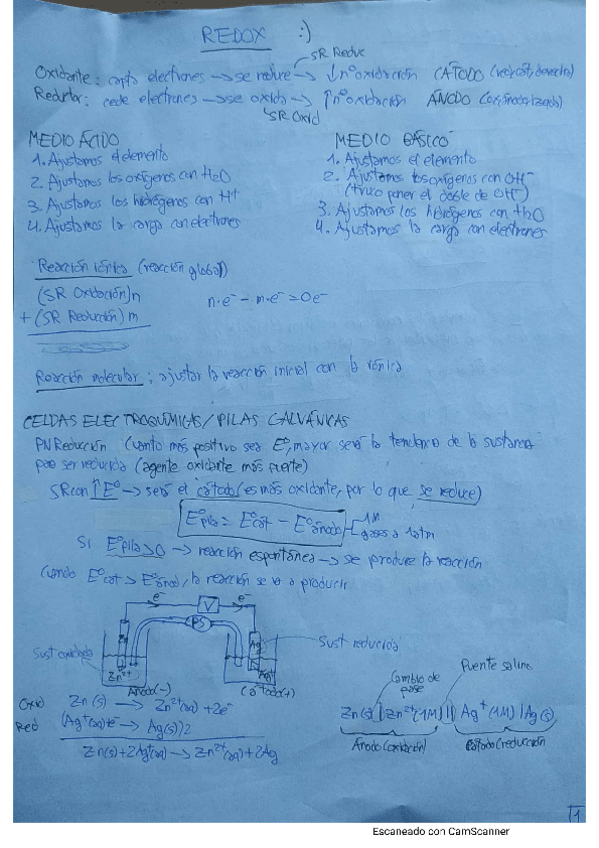 REDOX :)
SR Reduc
Oxidante: capta electrones → se reduce → ↓nº oxidación CÁTODO (redcat, derecha)
Reductor: cede electrones → se oxida → ↑nº oxidación ÁNODO
SR Oxid
MEDIO ÁCIDO
1. Ajustamos el elemento
2. Ajustamos los oxígenos con H2O
3. Ajustamos los hidrógenos con H+
4. Ajustamos la carga con electrones
MEDIO BÁSICO
1. Ajustamos el elemento
2. Ajustamos los oxígenos con OH-
(truco poner el doble de OH-)
3. Ajustamos los hidrógenos con H2O
4. Ajustamos la carga con electrones
Reacción iónica (reacción global)
(SR Oxidación)n
+ (SR Reducción)m
n·e- - m·e- = 0e-
Reacción molecular: ajustar la reacción inicial con la iónica
CELDAS ELECTROQUÍMICAS/PILAS GALVÁNICAS
PN Reducción Cuanto más positivo sea Eº, mayor será la tendencia de la sustancia
para ser reducida (agente oxidante más fuerte)
SR con ↑Eº → será el cátodo (es más oxidante, por lo que se reduce)
Eºpila = Eºcát - Eºánodo
1M
gases a 1atm
Si Eºpila>0 → reacción espontánea → se produce la reacción
Cuando Eºcát > Eºánod, la reacción se va a producir
e- V e-
Zn PS Ag
Sust oxidada
Sust reducida
Zn2+ Ag+
Ánodo(-) Cátodo(+)
Oxid Zn(s) → Zn2+(aq) + 2e-
Red (Ag+(aq)+e- → Ag(s))2
Zn(s)+2Ag+(aq) → Zn2+(aq)+2Ag
Cambio de
fase
Puente salino
Zn(s)|Zn2+(1M)||Ag+(1M)|Ag(s)
Ánodo(oxidación) Cátodo(reducción)
1
Escaneado con CamScanner